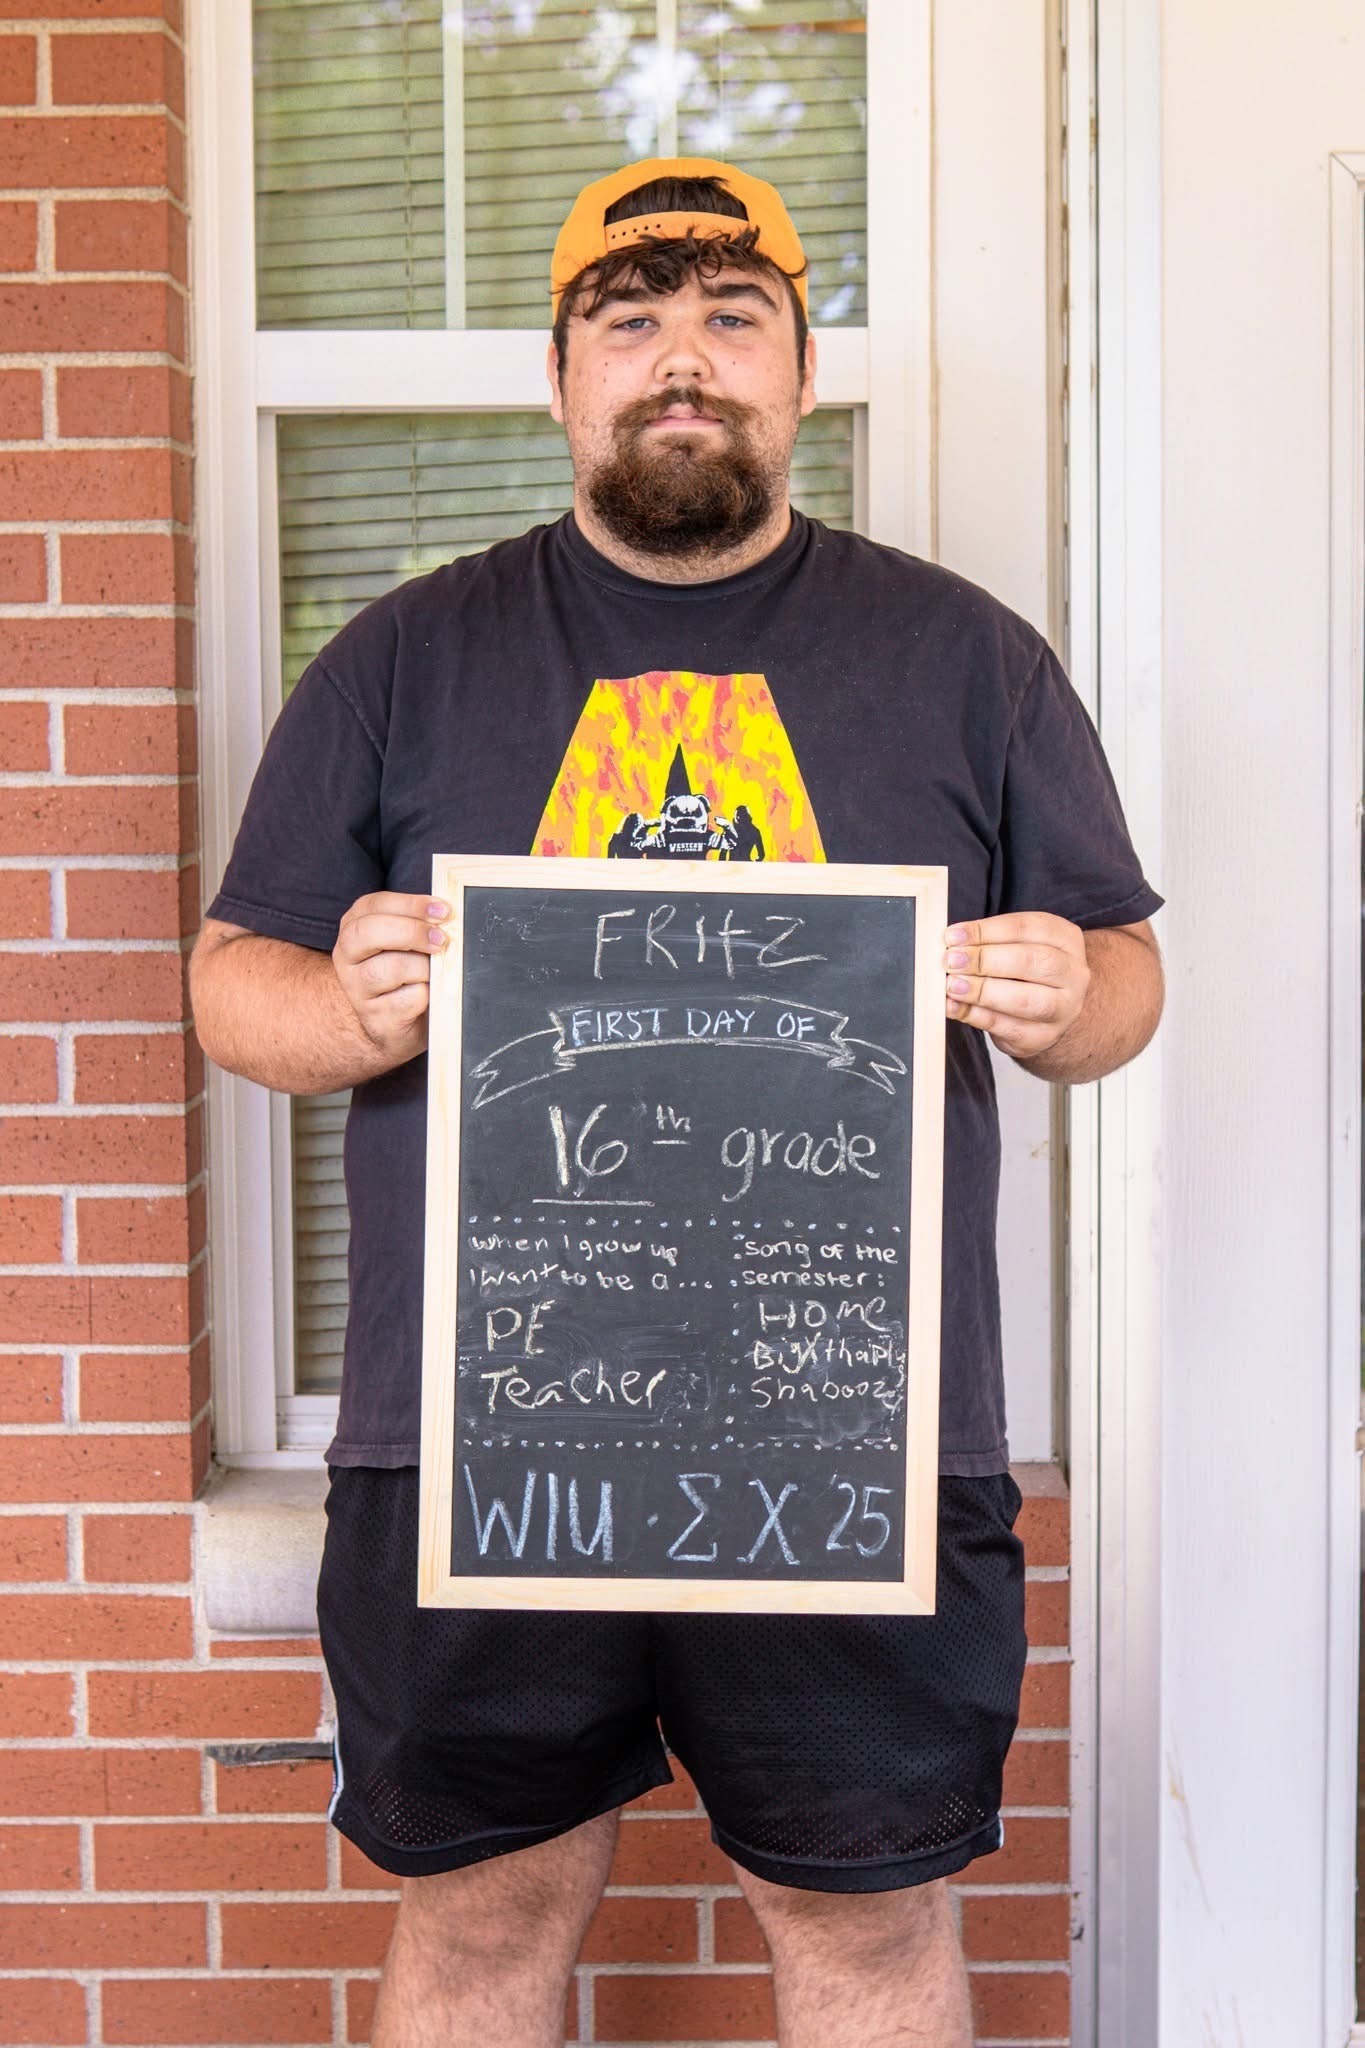 WESTERN
FRitZ
FIRST DAY OF
16th grade
when I grow up
I want to be a...
PE
Teacher
song of the
semester:
HOME
BigXthaPlug
Shaboozey
WIU · Σ X '25